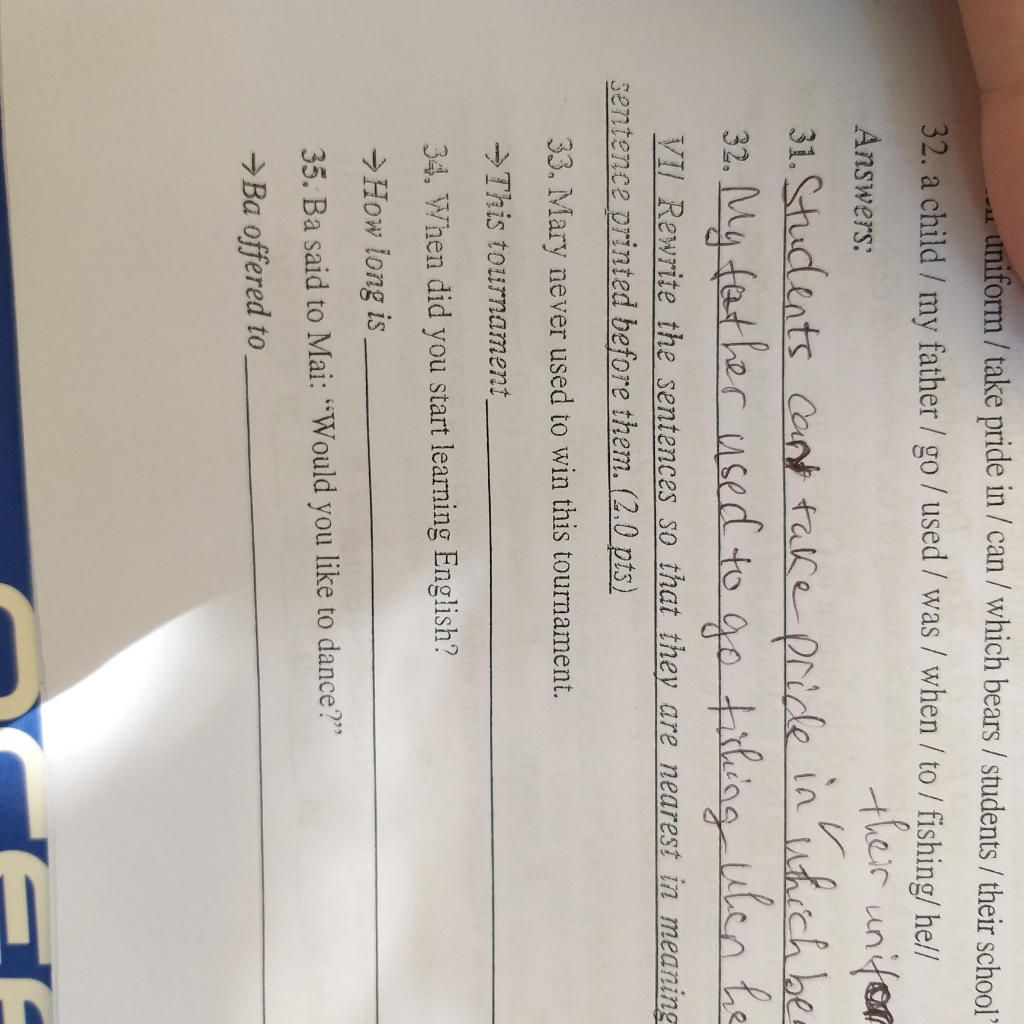 uniform / take pride in / can / which bears / students / their school'
32. a child / my father / go / used / was / when / to / fishing/ he//
Answers:
their uniform
31. Students can take pride in which
32. My father used to go fishing when he
VII Rewrite the sentences so that they are nearest in meaning
sentence printed before them. (2.0 pts)
33. Mary never used to win this tournament.
→This tournament
34. When did you start learning English?
→How long is
35. Ba said to Mai: “Would you like to dance?”
→Ba offered to